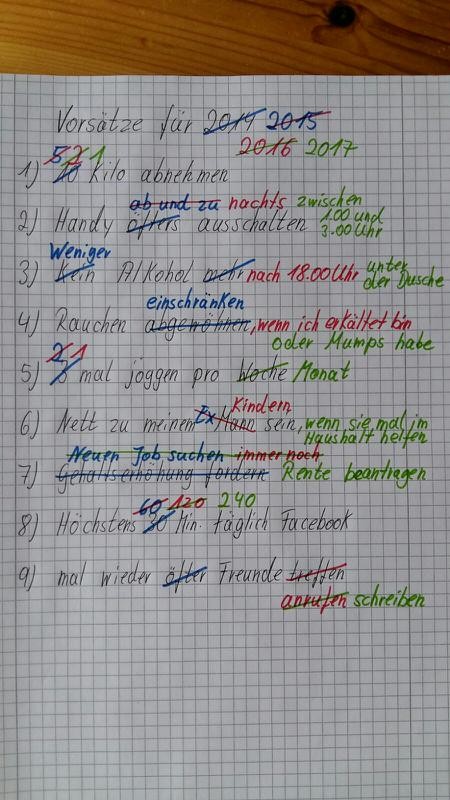 Vorsätze für 2014 2015
2016 2017
5 2 1
1) 10 Kilo abnehmen
ab und zu nachts zwischen
2) Handy öfters ausschalten 1.00 und
3.00 Uhr
Weniger
3) Kein Alkohol mehr nach 18.00 Uhr unter
der Dusche
einschränken
4) Rauchen abgewöhnen, wenn ich erkältet bin
oder Mumps habe
2 1
5) mal joggen pro Woche Monat
Kindern
6) Nett zu meinem Ex Mann sein, wenn sie mal im
Haushalt helfen
Neuen Job suchen immer noch
7) Gehaltserhöhung fordern Rente beantragen
60 120 240
8) Höchstens 30 Min. täglich Facebook
9) mal wieder öfter Freunde treffen
anrufen schreiben